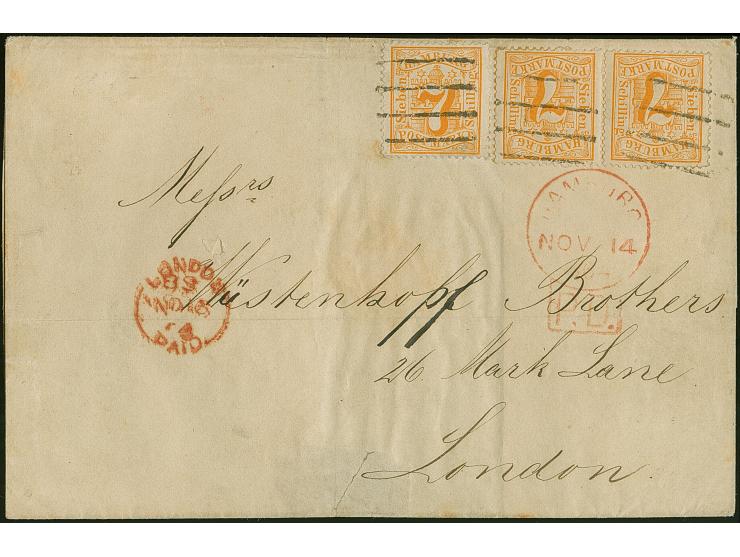 HAMBURG
POSTMARKE
Sieben
Schilling
7
HAMBURG
POSTMARKE
Sieben
Schilling
7
HAMBURG
POSTMARKE
Sieben
Schilling
7
HAMBURG
NOV. 14
P.D.
Messrs
Wüstenhoff Brothers
26. Mark Lane
London.
LONDON
NO 16
PAID